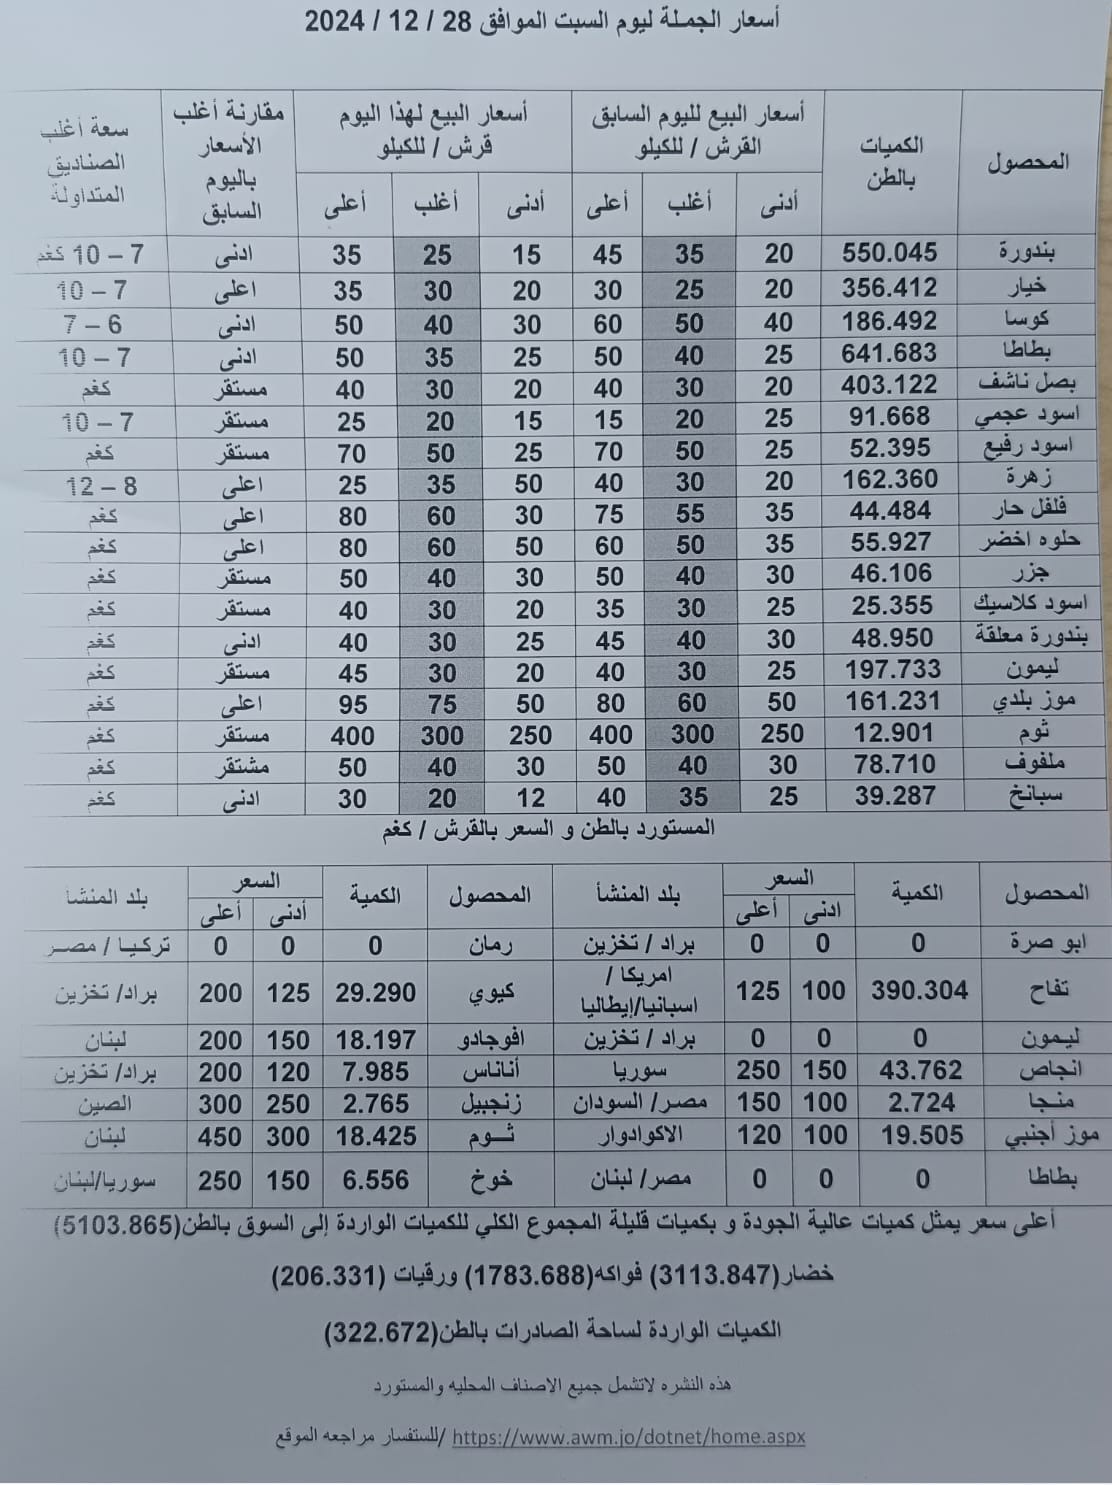 أسعار الجملة ليوم السبت الموافق 28 / 12 / 2024
المحصول الكميات بالطن أسعار البيع لليوم السابق القرش / للكيلو أسعار البيع لهذا اليوم قرش / للكيلو مقارنة أغلب الأسعار باليوم السابق سعة أغلب الصناديق المتداولة
أدنى أغلب أعلى أدنى أغلب أعلى
بندورة 550.045 20 35 45 15 25 35 ادنى 7 – 10 كغم
خيار 356.412 20 25 30 20 30 35 اعلى 7 – 10
كوسا 186.492 40 50 60 30 40 50 ادنى 6 – 7
بطاطا 641.683 25 40 50 25 35 50 ادنى 7 – 10
بصل ناشف 403.122 20 30 40 20 30 40 مستقر كغم
اسود عجمي 91.668 25 20 15 15 20 25 مستقر 7 – 10
اسود رفيع 52.395 25 50 70 25 50 70 مستقر كغم
زهرة 162.360 20 30 40 50 35 25 اعلى 8 – 12
فلفل حار 44.484 35 55 75 30 60 80 اعلى كغم
حلوه اخضر 55.927 35 50 60 50 60 80 اعلى كغم
جزر 46.106 30 40 50 30 40 50 مستقر كغم
اسود كلاسيك 25.355 25 30 35 20 30 40 مستقر كغم
بندورة معلقة 48.950 30 40 45 25 30 40 ادنى كغم
ليمون 197.733 25 30 40 20 30 45 مستقر كغم
موز بلدي 161.231 50 60 80 50 75 95 اعلى كغم
ثوم 12.901 250 300 400 250 300 400 مستقر كغم
ملفوف 78.710 30 40 50 30 40 50 مشتقر كغم
سبانخ 39.287 25 35 40 12 20 30 ادنى كغم
المستورد بالطن و السعر بالقرش / كغم
المحصول الكمية السعر بلد المنشأ المحصول الكمية السعر بلد المنشأ
ادنى أعلى أدنى أعلى
ابو صرة 0 0 0 براد / تخزين رمان 0 0 0 تركيا / مصر
تفاح 390.304 100 125 امريكا / اسبانيا/إيطاليا كيوي 29.290 125 200 براد/ تخزين
ليمون 0 0 0 براد / تخزين افوجادو 18.197 150 200 لبنان
انجاص 43.762 150 250 سوريا أناناس 7.985 120 200 براد/ تخزين
منجا 2.724 100 150 مصر/ السودان زنجبيل 2.765 250 300 الصين
موز أجنبي 19.505 100 120 الاكوادوار ثوم 18.425 300 450 لبنان
بطاطا 0 0 0 مصر/ لبنان خوخ 6.556 150 250 سوريا/لبنان
أعلى سعر يمثل كميات عالية الجودة و بكميات قليلة المجموع الكلي للكميات الواردة إلى السوق بالطن(5103.865)
خضار(3113.847) فواكه(1783.688) ورقيات (206.331)
الكميات الواردة لساحة الصادرات بالطن(322.672)
هذه النشره لاتشمل جميع الاصناف المحليه والمستورد
للستفسار مراجعه الموقع/ https://www.awm.jo/dotnet/home.aspx